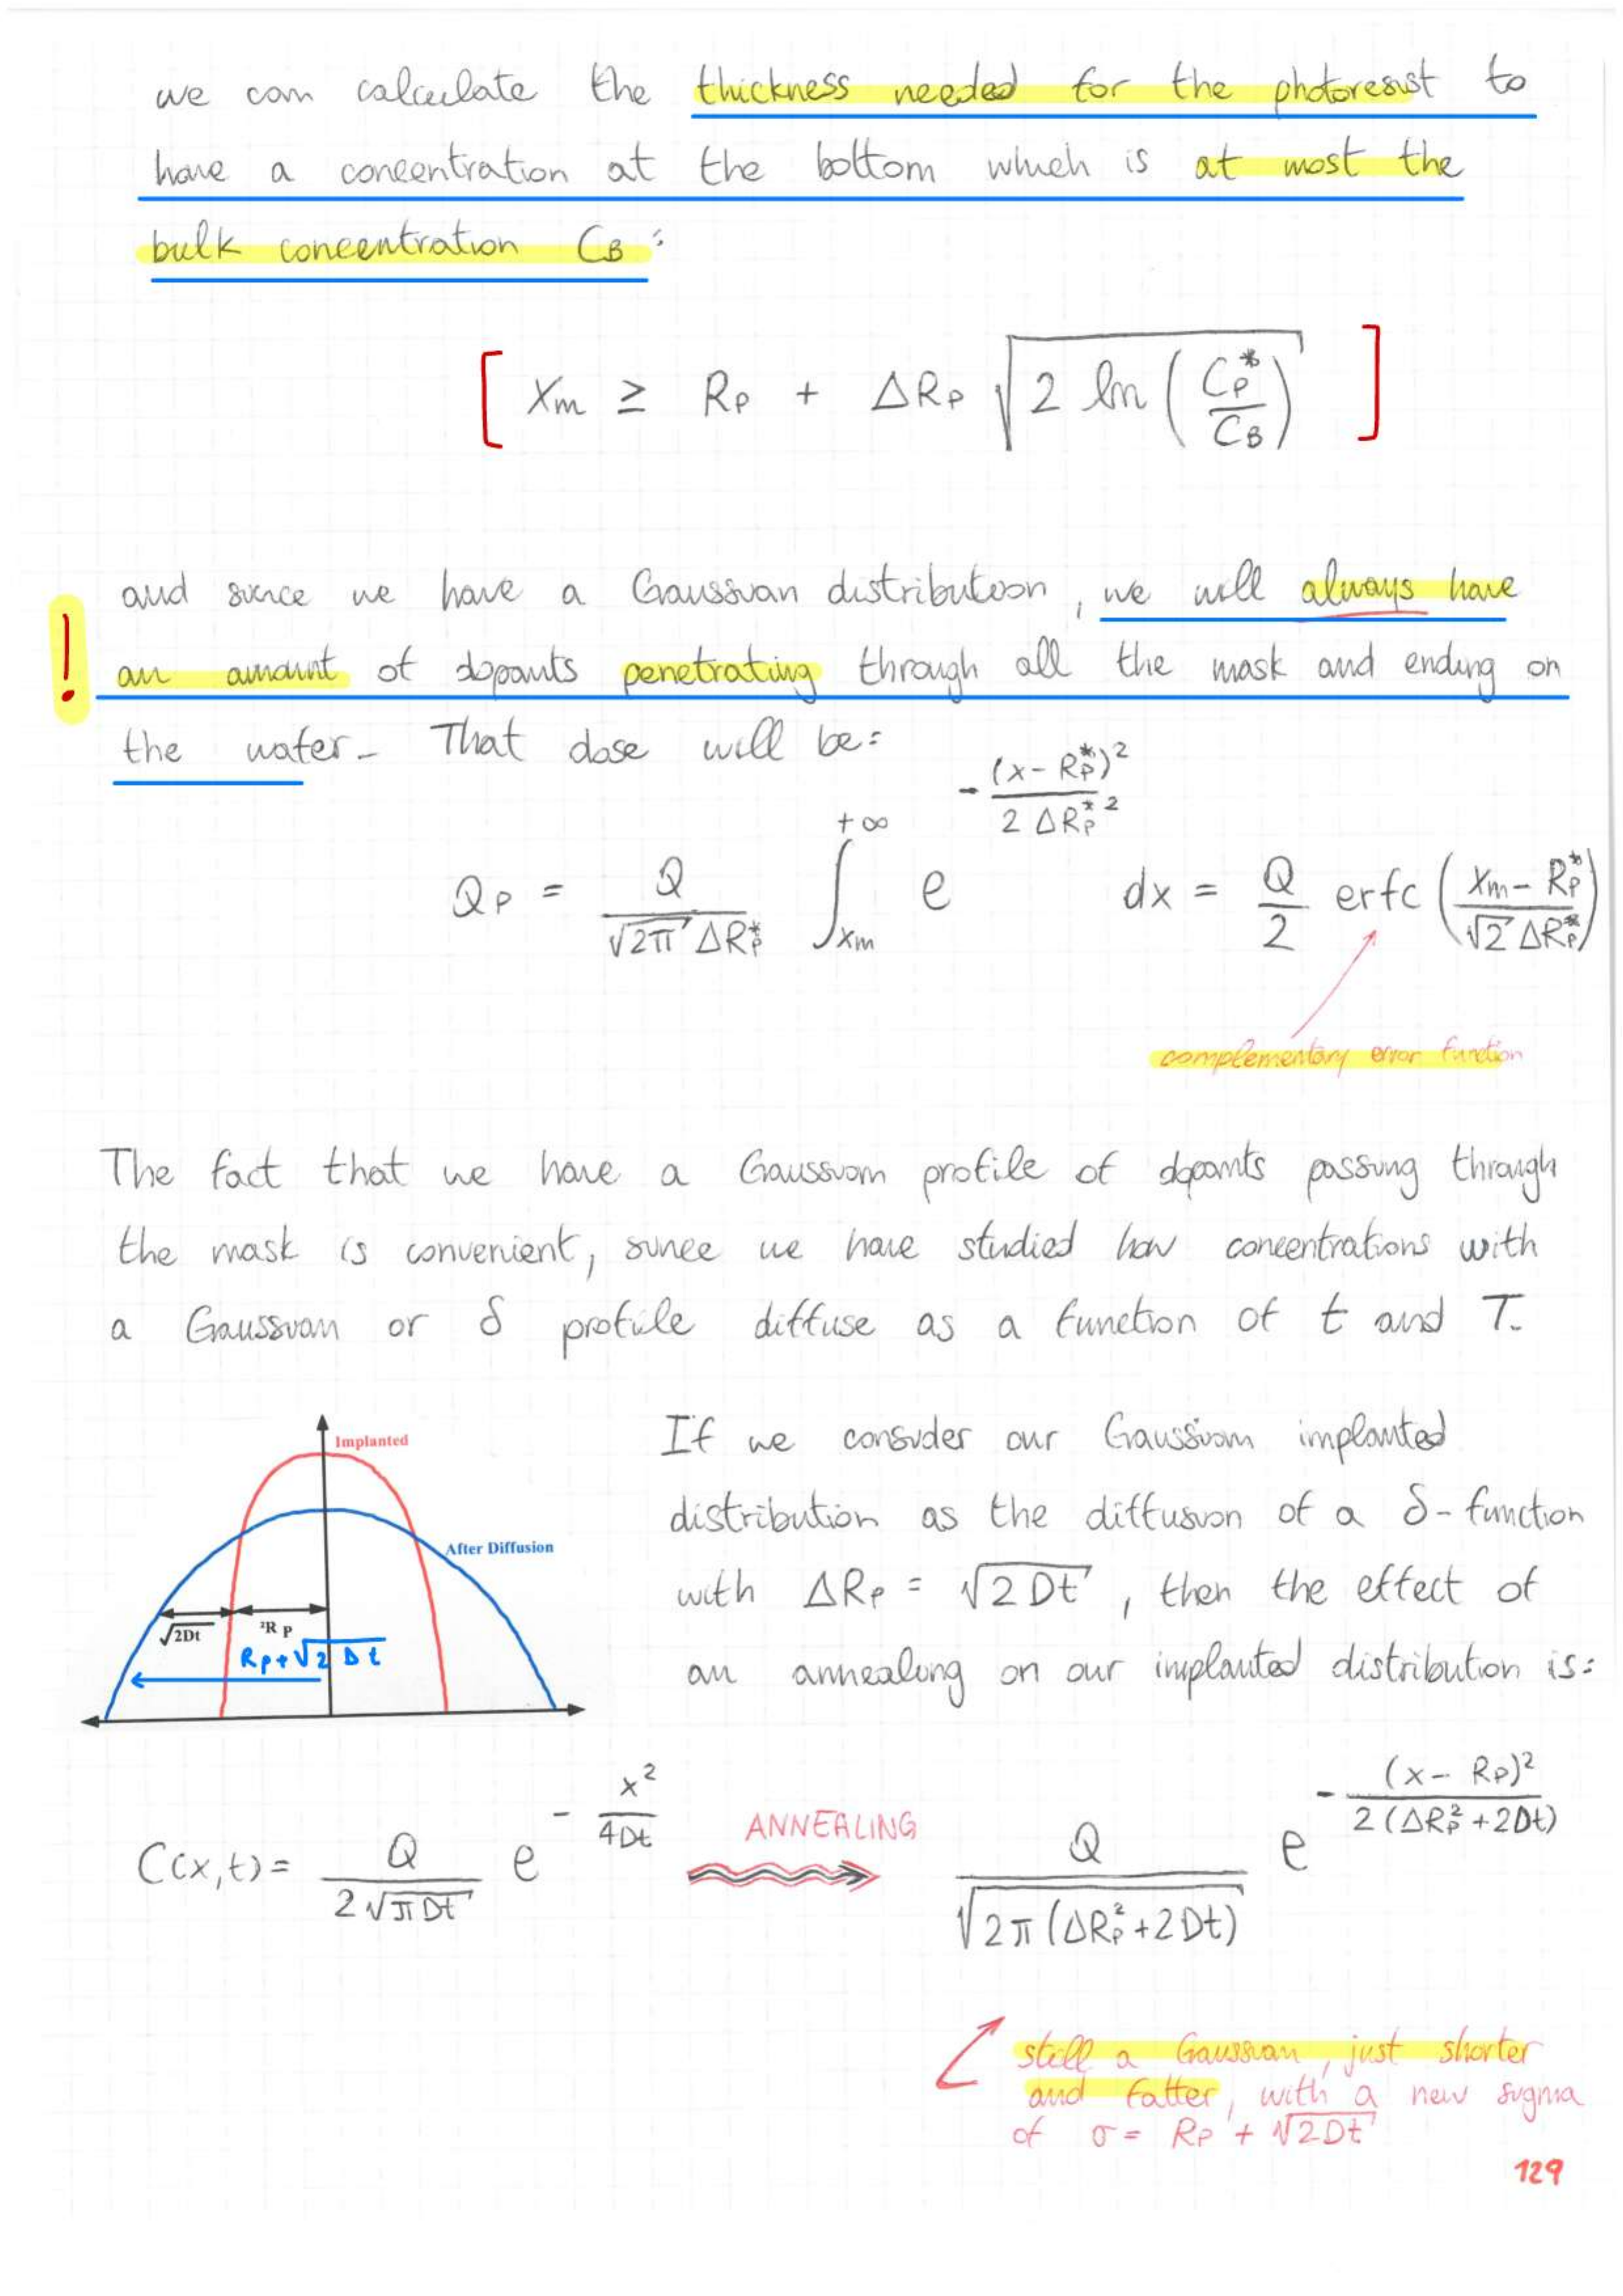 we can calculate the thickness needed for the photoresist to
have a concentration at the bottom which is at most the
bulk concentration C_B:
[ X_m ≥ R_P + ΔR_P √(2 ln (C_P^* / C_B)) ]
and since we have a Gaussian distribution, we will always have
! an amount of dopants penetrating through all the mask and ending on
the wafer. That dose will be:
Q_P = Q / (√(2π) ΔR_P^*) ∫_{X_m}^{+∞} e^{-(x - R_P^*)^2 / (2 ΔR_P^{*2})} dx = Q/2 erfc ((X_m - R_P^*) / (√2 ΔR_P^*))
complementary error function
The fact that we have a Gaussian profile of dopants passing through
the mask is convenient, since we have studied how concentrations with
a Gaussian or δ profile diffuse as a function of t and T.
Implanted
After Diffusion
√2Dt
²R P
R_P + √2Dt
If we consider our Gaussian implanted
distribution as the diffusion of a δ-function
with ΔR_P = √2Dt, then the effect of
an annealing on our implanted distribution is:
C(x,t) = Q / (2√(πDt)) e^{-x^2 / 4Dt} ANNEALING Q / √(2π(ΔR_P^2 + 2Dt)) e^{-(x - R_P)^2 / (2(ΔR_P^2 + 2Dt))}
still a Gaussian, just shorter
and fatter, with a new sigma
of σ = R_P + √2Dt
129